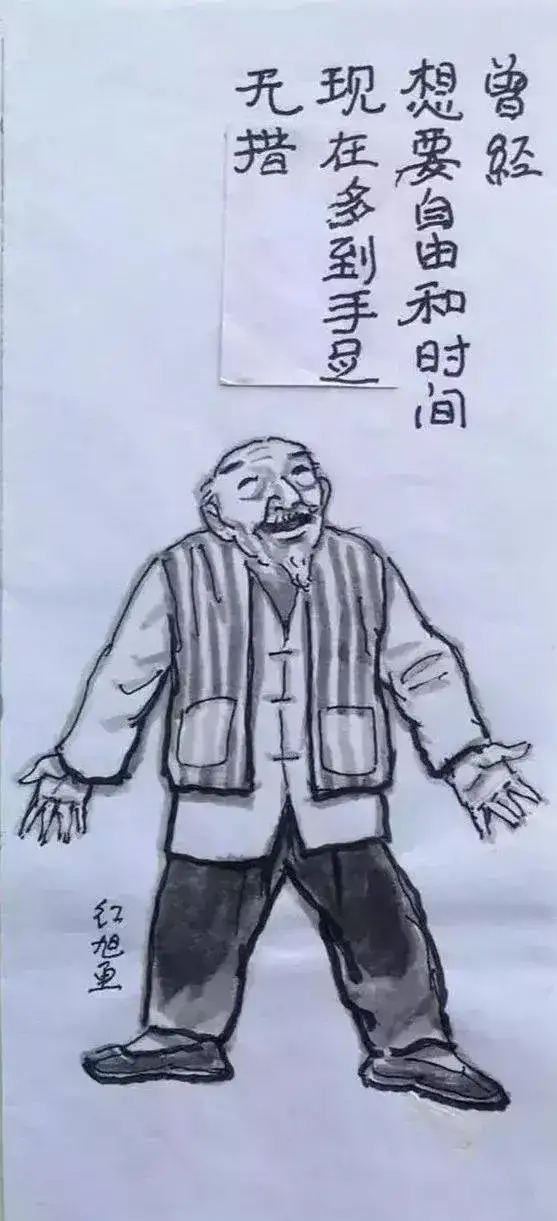 曾经
想要自由和时间
现在多到手足
无措
红旭画